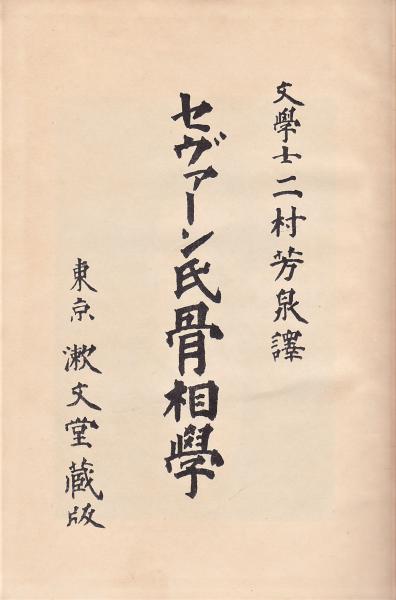 文學士二村芳泉譯
セヴァーン氏骨相學
東京 漱文堂蔵版